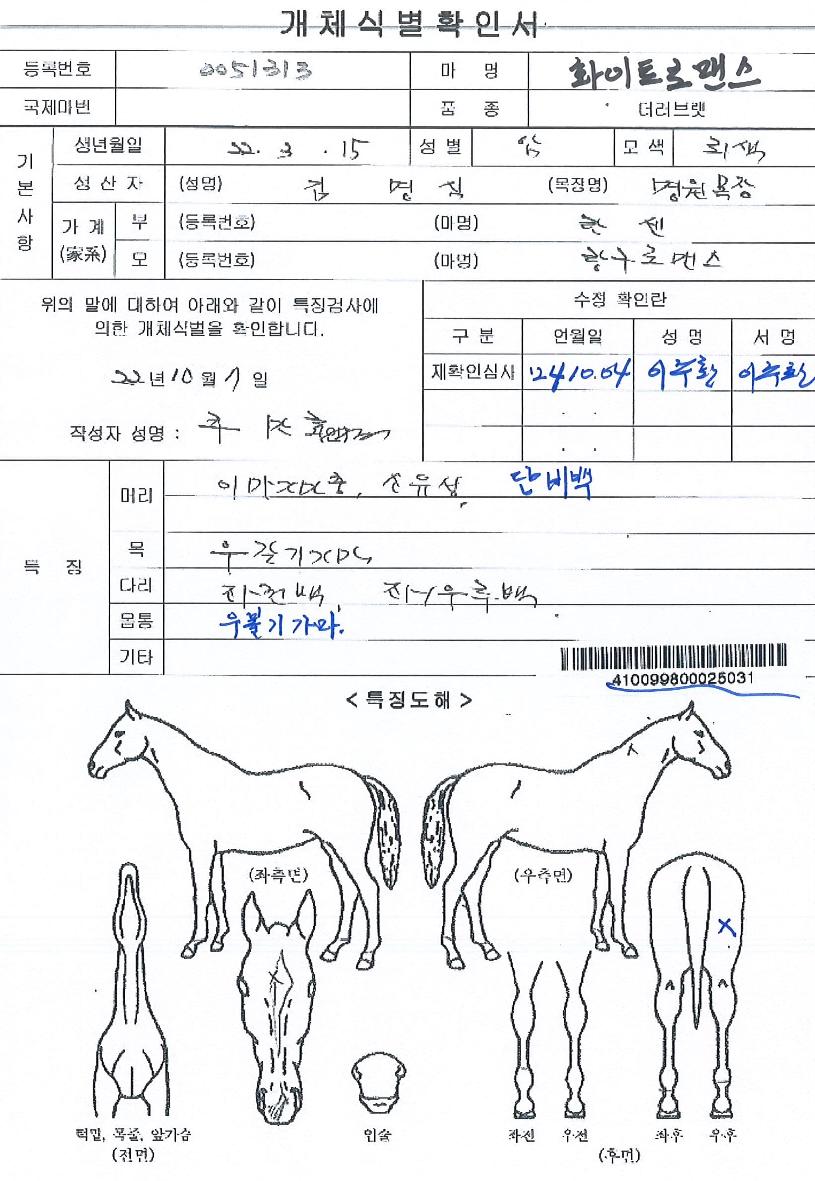 개체식별확인서
등록번호 0051313 마 명 화이트로맨스
국제마번 품 종 더러브렛
기본사항
생년월일 22. 3 . 15 성별 암 모색 회색
생산자 (성명) 김 명 식 (목장명) 명원목장
가계 (家系) 부 (등록번호) (마명) 한 센
모 (등록번호) (마명) 항구로맨스
위의 말에 대하여 아래와 같이 특징검사에
의한 개체식별을 확인합니다.
22년 10월 7일
작성자 성명 :
수정 확인란
구 분 연월일 성 명 서 명
재확인심사 '24.10.04 이주환 이주환
특 징
머리 이마 유성 단비백
목 우갈기
다리
몸통 우볼기가마.
기타
410099800025031
<특징도해>
(좌측면) (우측면)
턱밑, 목줄, 앞가슴 입술 좌전 우전 좌후 우후
(전면) (후면)